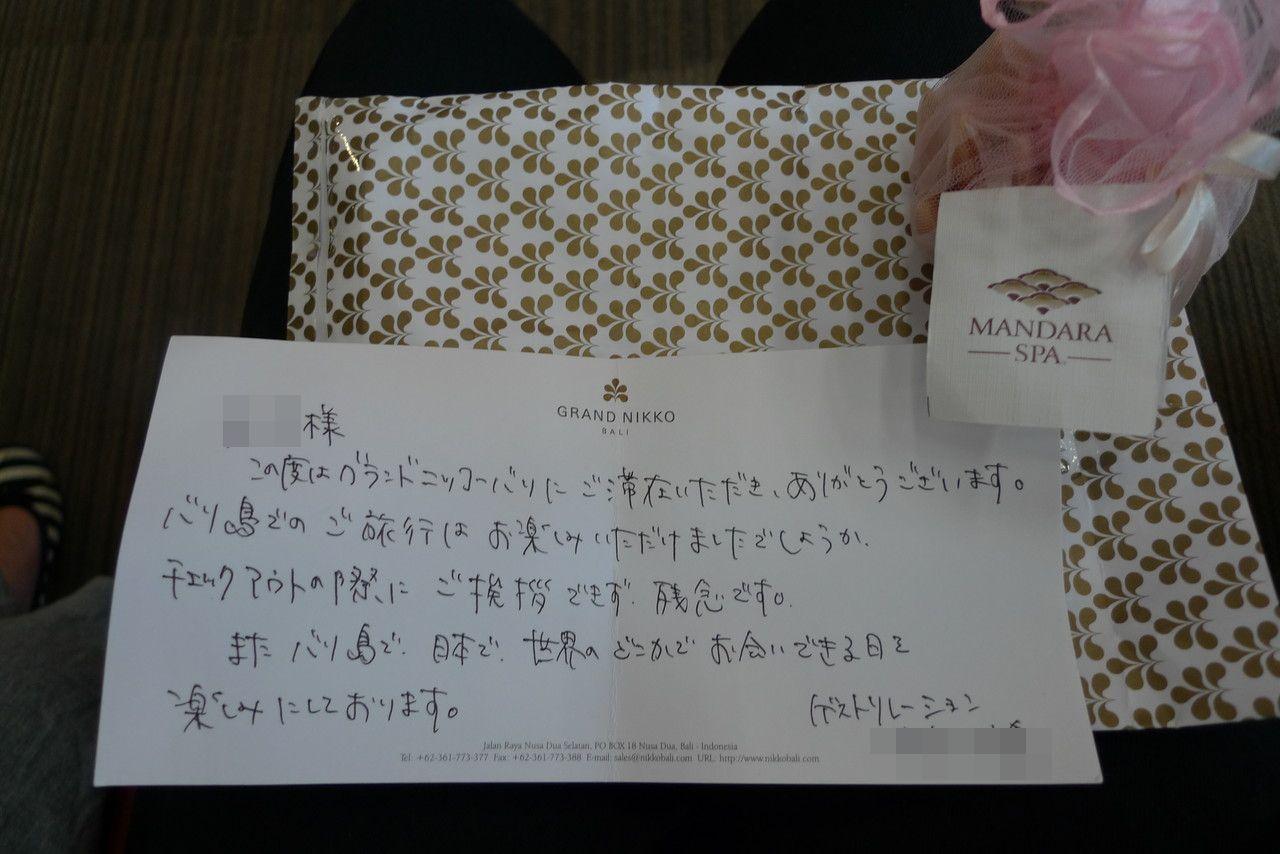 MANDARA
SPA
GRAND NIKKO
BALI
様
この度はグランドニッコーバリにご滞在いただき、ありがとうございます。
バリ島でのご旅行はお楽しみいただけましたでしょうか。
チェックアウトの際にご挨拶できず、残念です。
またバリ島で、日本で、世界のどこかでお会いできる日を
楽しみにしております。
ゲストリレーション
Jalan Raya Nusa Dua Selatan, PO BOX 18 Nusa Dua, Bali - Indonesia
Tel: +62-361-773-377 Fax: +62-361-773-388 E-mail: sales@nikkobali.com URL: http://www.nikkobali.com